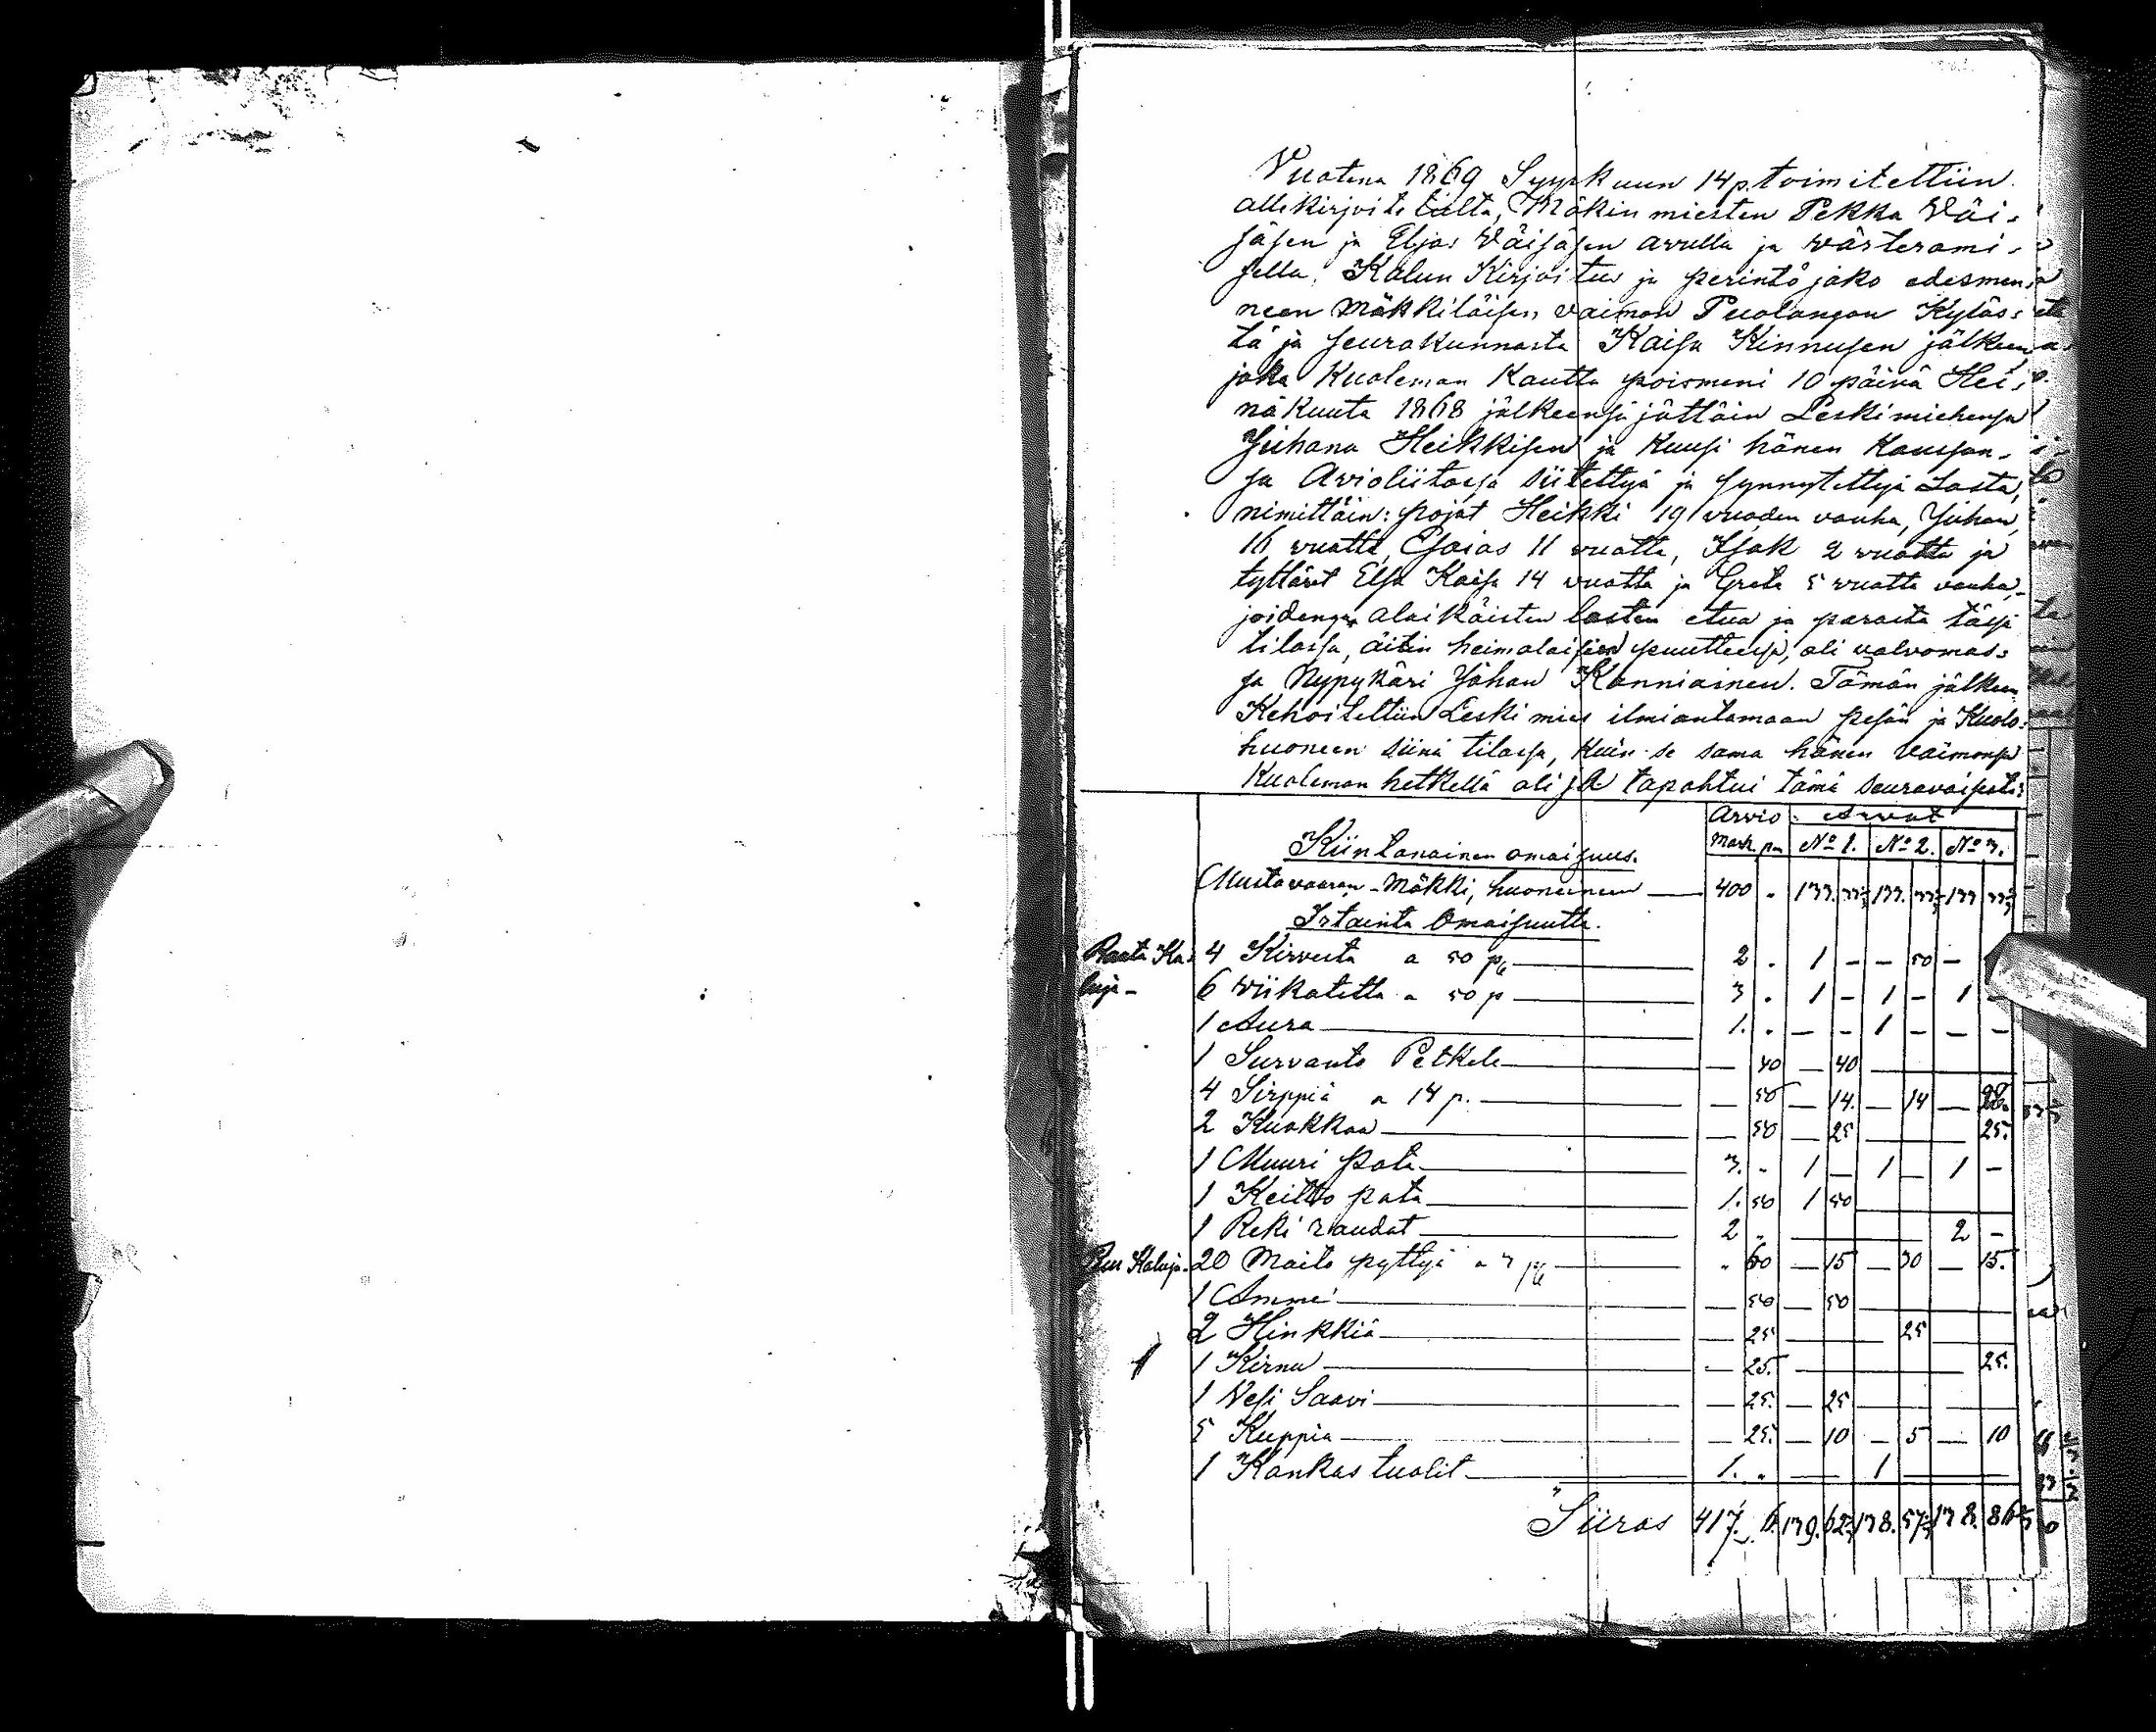 Vuotena 1869 Syyskuun 14 p. toimitettiin
allekirjoitetulta, Mäkin miesten Pekka Väi-
säsen ja Eljas Väisäsen avulla ja
sella, Kalun Kirjoitus ja perintö jako edesmen-
neen Mäkkiläisen vaimon Puolangan Kyläs-
tä ja seurakunnasta Kaisa Kinnusen jälkeen
joka Kuoleman Kautta poismeni 10 päivä Hei-
näkuuta 1868 jälkeensä jättäin Leskimiehensä
Juhana Heikkisen ja Kuusi hänen Kanssan-
sa Avioliitossa siitettyä ja synnytettyä Lasta,
nimittäin: pojat Heikki 19 vuoden vanha, Juhan
16 vuotta, Esaias 11 vuotta, Isak 2 vuotta ja
tyttäret Elsa Kaisa 14 vuotta ja Greta 5 vuotta vanha,
joidenga alaikäisten lasten etua ja parasta tässä
tilassa, äitin heimolaisien puutteessa, oli valvomas-
sa Nypykäri Johan Kanniainen. Tämän jälkeen
Kehoitettiin Leskimies ilmiantamaan pesän ja Kuolo-
huoneen siinä tilassa, Kuin se sama hänen vaimonsa
Kuoleman hetkellä oli ja tapahtui tämä seuravaisesti:
Arvio Arvat
Kiintanainen omaisuus. Mark. p. No 1. No 2. No 3.
Mustavaaran-Mäkki, huoneineen 400 . 133. 33⅓ 133. 33⅓ 133 33⅓
Irtainta Omaisuutta.
Rauta Ka- 4 Kirvestä a 50 p. 2 . 1 - - 50 -
luja- 6 Viikatetta a 50 p 3 . 1 - 1 - 1 -
1 Aura 1. . - - 1 - - -
1 Survanto Petkele — 40 — 40
4 Sirppiä a 14 p. — 56 — 14. — 14 — 28.
2 Kuokkaa — 50 — 25 25.
1 Muuri pata 3. - 1 - 1 - 1 -
1 Keitto pata 1. 50 1 50
1 Reki raudat 2 . 2 -
Puu Kaluja. 20 Maito pyttyä a 3 p. . 60 — 15 — 30 — 15.
1 Amme — 50 — 50
2 Hinkkiä — 25 25
1 Kirnu — 25. 25.
1 Vesi Saavi — 25. — 25
5 Kuppia — 25. — 10 — 5 — 10
1 Kankas tuolit 1. . 1
Siiras 417. 6. 139. 62⅓ 138. 57⅓ 138. 86⅓